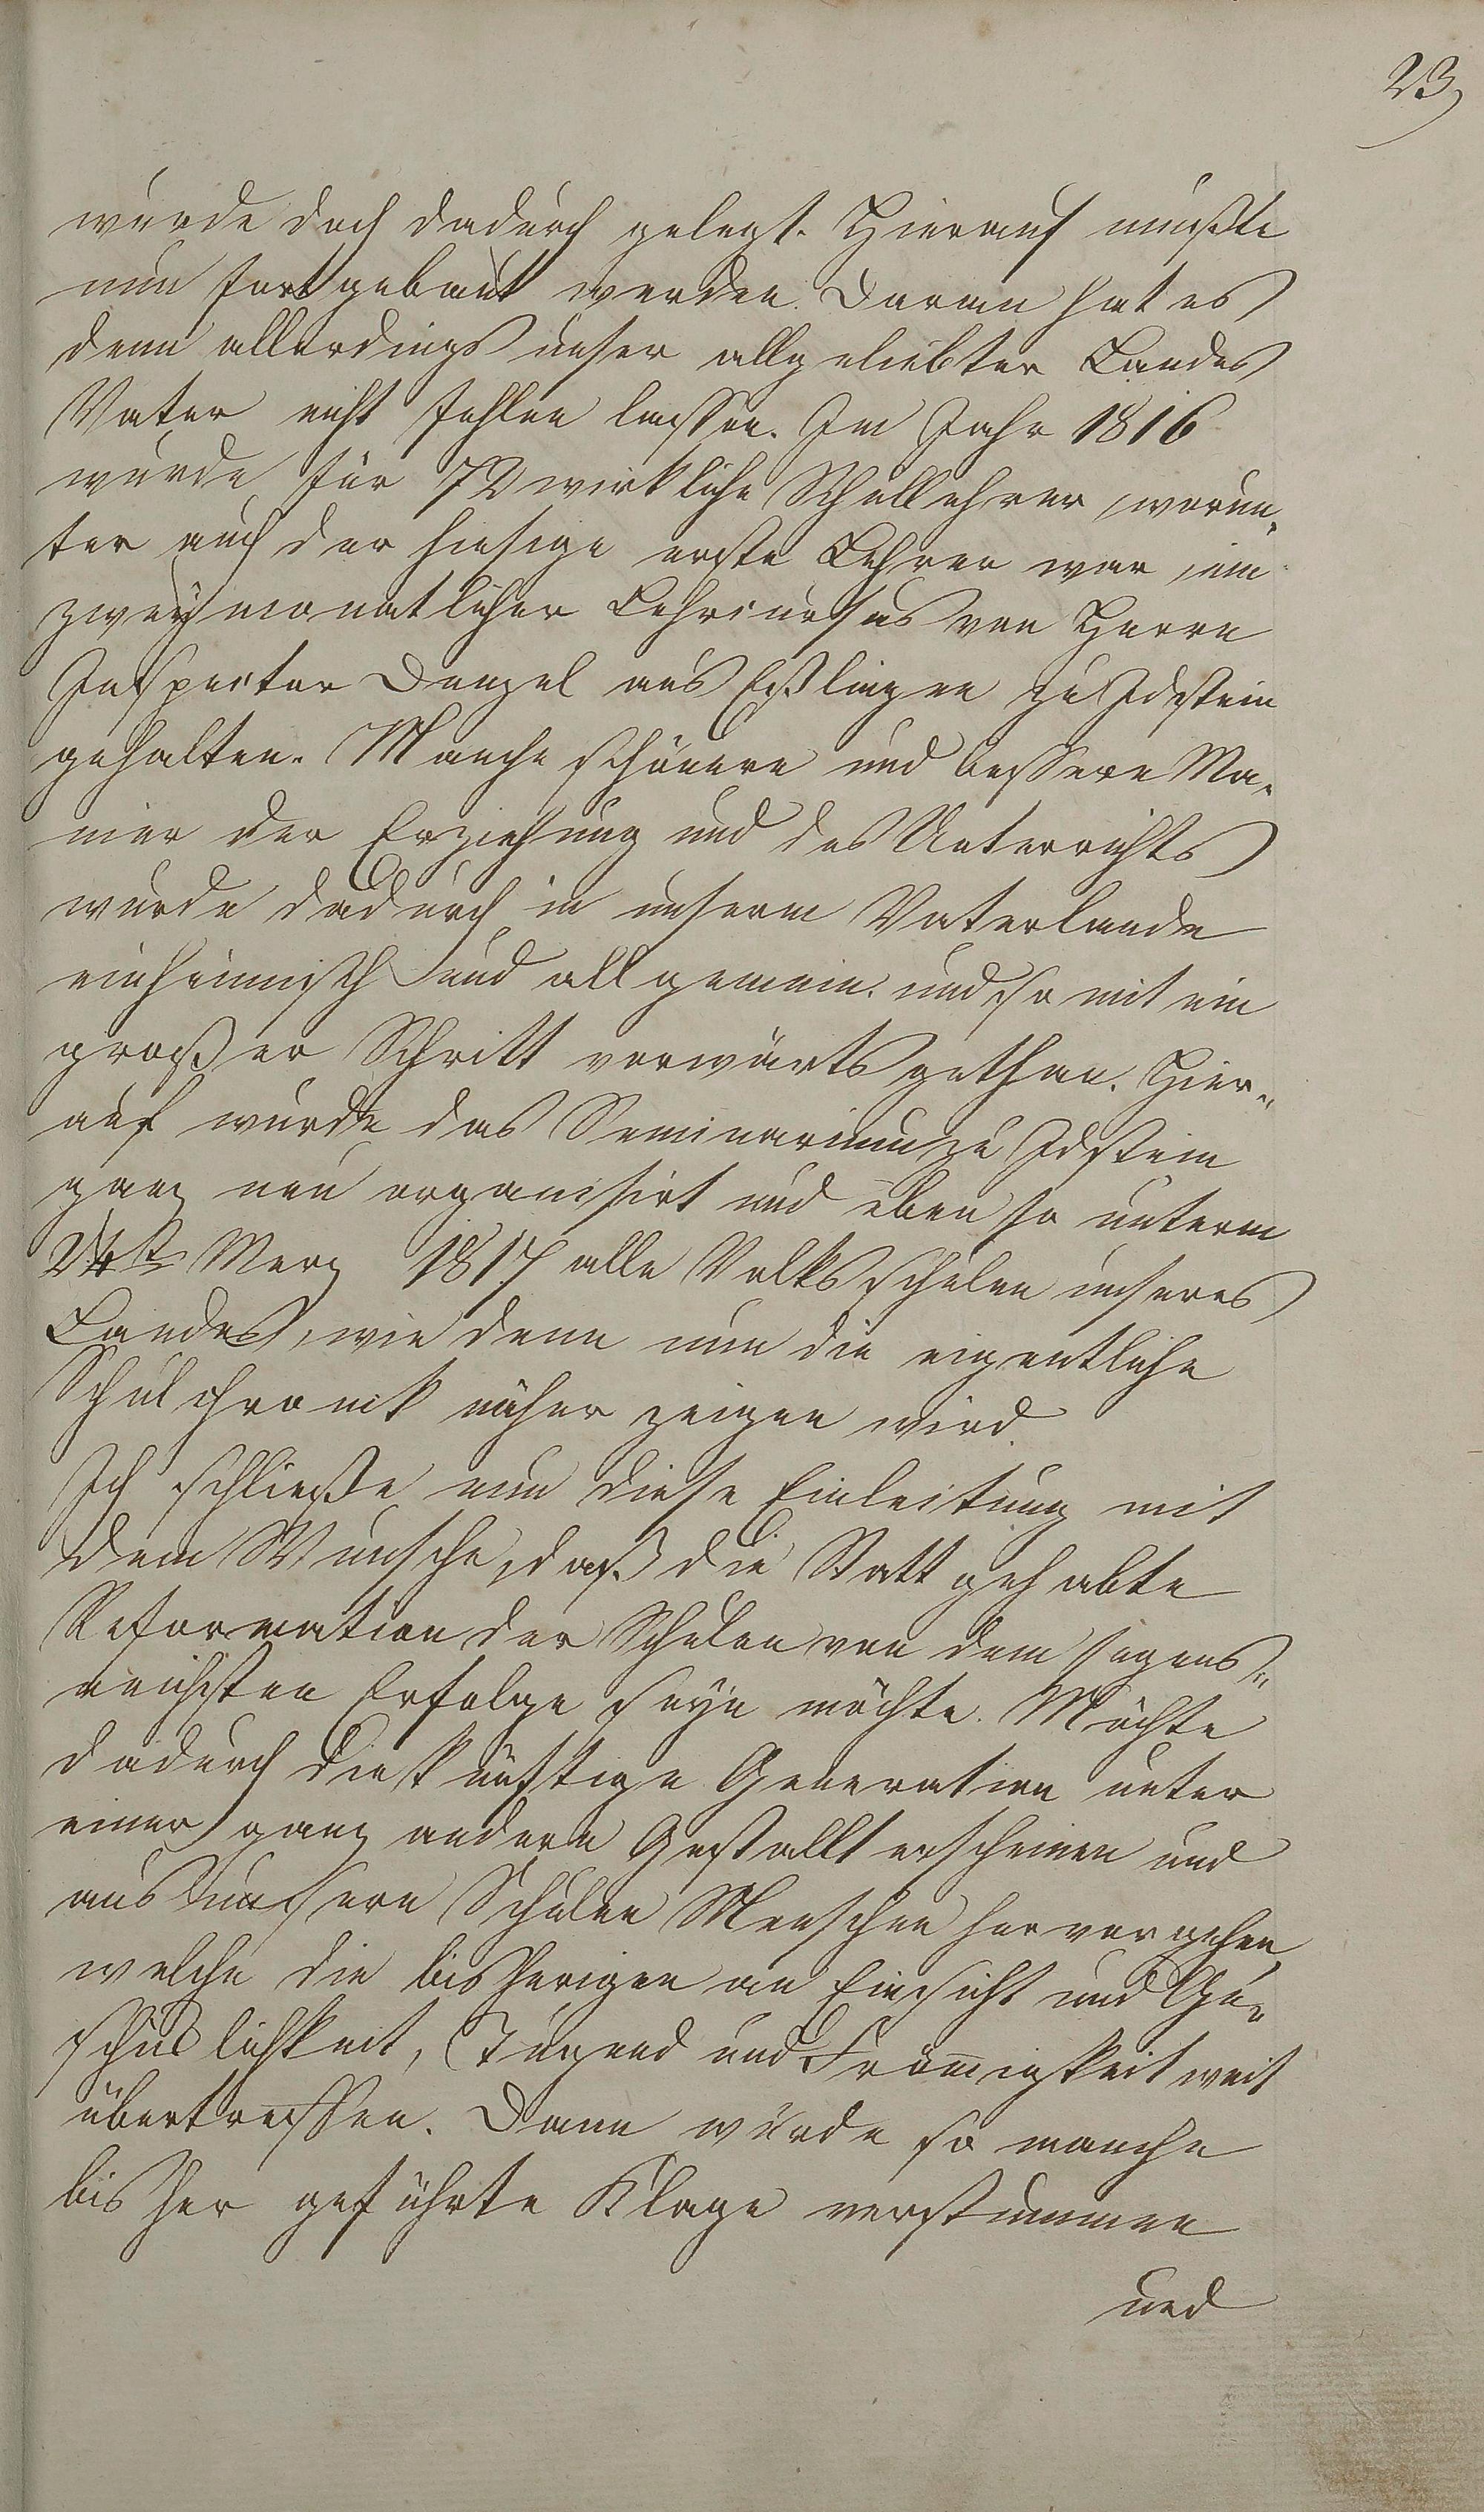 23,
wurde doch dadurch gelegt. Hierauf mußte
nun fortgebaut werden. Daran hat es
denn allerdings unser allgeliebter Landes
Vater nicht fehlen lassen. Im Jahr 1816
wurde für 70 wirkliche Schullehrer, worun-
ter auch der hiesige erste Lehrer war, ein
zweymonatlicher Lehrcursus von Herrn
Inspector Denzel aus Eßlingen zu Idstein
gehalten. Manche schönere und bessere Ma-
nier der Erziehung und des Unterrichts
wurde dadurch in unserm Vaterlande
einheimisch und allgemein und somit ein
großer Schritt vorwärts gethan. Hier-
auf wurde das Seminarium zu Idstein
ganz neu organisirt und eben so unterm
24ten Merz 1817 alle Volksschulen unseres
Landes, wie denn nun die eigentliche
Schulchronik näher zeigen wird.
Ich schließe nun diese Einleitung mit
dem Wunsche, daß die Statt gehabte
Reformation der Schulen von dem segens-
reichsten Erfolge seyn möchte. Möchte
dadurch die künftige Generation unter
einer ganz andern Gestallt erscheinen und
aus unsern Schulen Menschen hervorgehen,
welche die bisherigen an Einsicht und Ge-
schicklichkeit, Tugend und Frömigkeit weit
übertreffen. Dann würde so manche
bisher geführte Klage verstummen
und